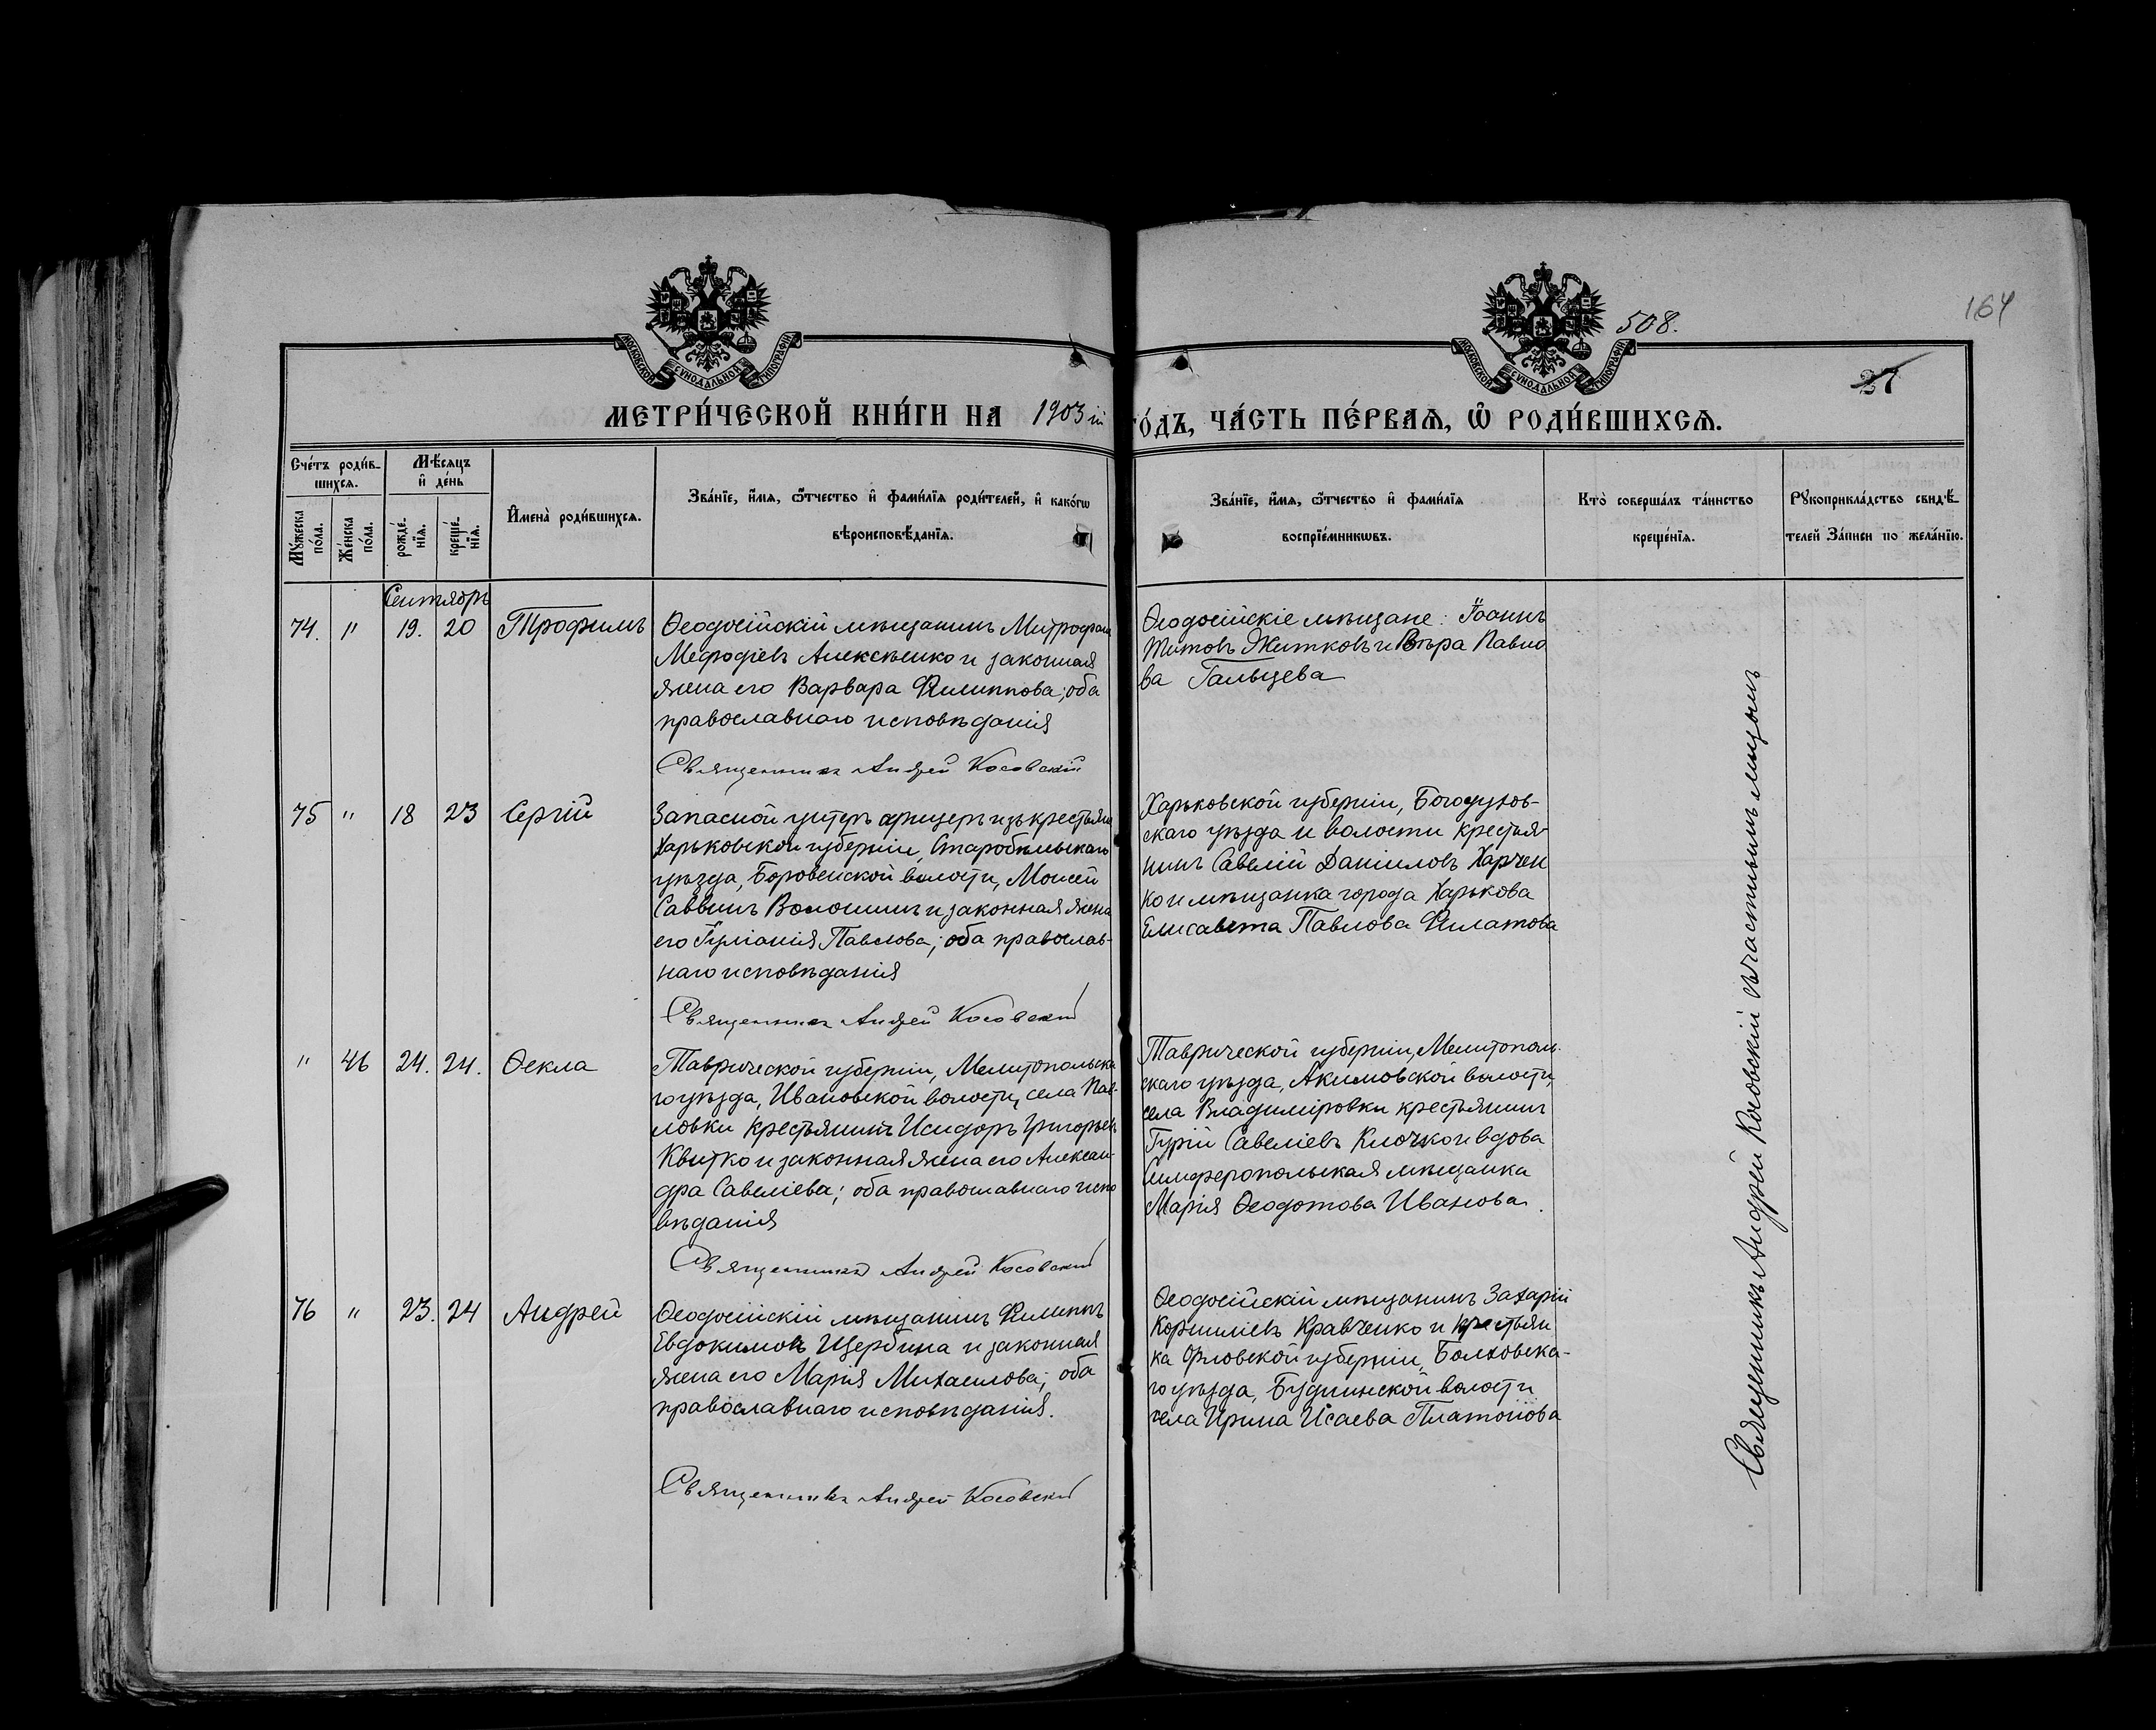 МОСКОВСКОЙ СѴНОДАЛЬНОЙ ТИПОГРАФІИ
МОСКОВСКОЙ СѴНОДАЛЬНОЙ ТИПОГРАФІИ
508.
164
27
МЕТРИ́ЧЕСКОЙ КНИ́ГИ НА 1903 й ГО́ДЪ, ЧА́СТЬ ПЕ́РВАѦ, Ѡ҆ РОДИ́ВШИХСѦ.
Сче́тъ роди́в-
шихсѧ.
Мѣ́сѧцъ
и҆ де́нь
Мꙋ́жеска
по́ла.
Же́нска
по́ла.
рожде́-
нїѧ.
креще́-
нїѧ.
И҆мена̀ роди́вшихсѧ.
Зва́нїе, и҆́мѧ, ѻ҆́тчество и҆ фами́лїѧ роди́телей, и҆ како́гѡ
вѣроисповѣ́данїѧ.
Зва́нїе, и҆́мѧ, ѻ҆́тчество и҆ фами́лїѧ
воспрїе́мникѡвъ.
Кто̀ соверша́лъ та́инство
креще́нїѧ.
Рꙋкоприкла́дство свидѣ́-
телей За́писи по жела́нїю.
Сентябрь
74. " 19. 20 Трофимъ
Ѳеодосійскій мѣщанинъ Митрофанъ
Меѳодіевъ Алексѣенко и законная
жена его Варвара Филиппова; оба
православнаго исповѣданія
Священникъ Андрей Косовскій
Ѳеодосійскіе мѣщане: Іоаннъ
Титовъ Житковъ и Вѣра Павло
ва Гальцева
75 " 18 23 Сергій
Запасной унтеръ офицеръ изъ крестьянъ
Харьковской губерніи, Старобѣльскаго
уѣзда, Боровенской волости, Моисей
Саввинъ Волошинъ и законная жена
его Іуліанія Павлова; оба православ-
наго исповѣданія
Священникъ Андрей Косовскій
Харьковской губерніи, Богодухов-
скаго уѣзда и волости крестья-
нинъ Савелій Даніиловъ Харчен
ко и мѣщанка города Харькова
Елисавета Павлова Филатова
" 46 24. 24. Ѳекла
Таврической губерніи, Мелитопольска
го уѣзда, Ивановской волости, села Пав-
ловки крестьянинъ Исидоръ Григорьевъ
Квитко и законная жена его Алексан-
дра Савеліева; оба православнаго испо
вѣданія
Священникъ Андрей Косовскій
Таврической губерніи, Мелитополь-
скаго уѣзда, Акимовской волости,
села Владиміровки крестьянинъ
Гурій Савеліевъ Клочко и вдова
Симферопольская мѣщанка
Марія Ѳеодотова Иванова.
76 " 23. 24 Андрей
Ѳеодосійскій мѣщанинъ Филиппъ
Евдокимовъ Щербина и законная
жена его Марія Михаилова; оба
православнаго исповѣданія.
Священникъ Андрей Косовскій
Ѳеодосійскій мѣщанинъ Захарій
Корниліевъ Кравченко и крестьян
ка Орловской губерніи, Болховска-
го уѣзда, Будминской волости
села Ирина Исаева Платонова
Священникъ Андрей Косовскій съ